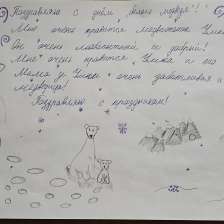 Поздравляю с днём "белого медведя"!
Мне очень нравится медвежонок Умка
Он очень любопытный и добрый!
Мне очень нравится, Умка и его
Мама у Умки - очень заботливая и
Поздравляю с праздником!